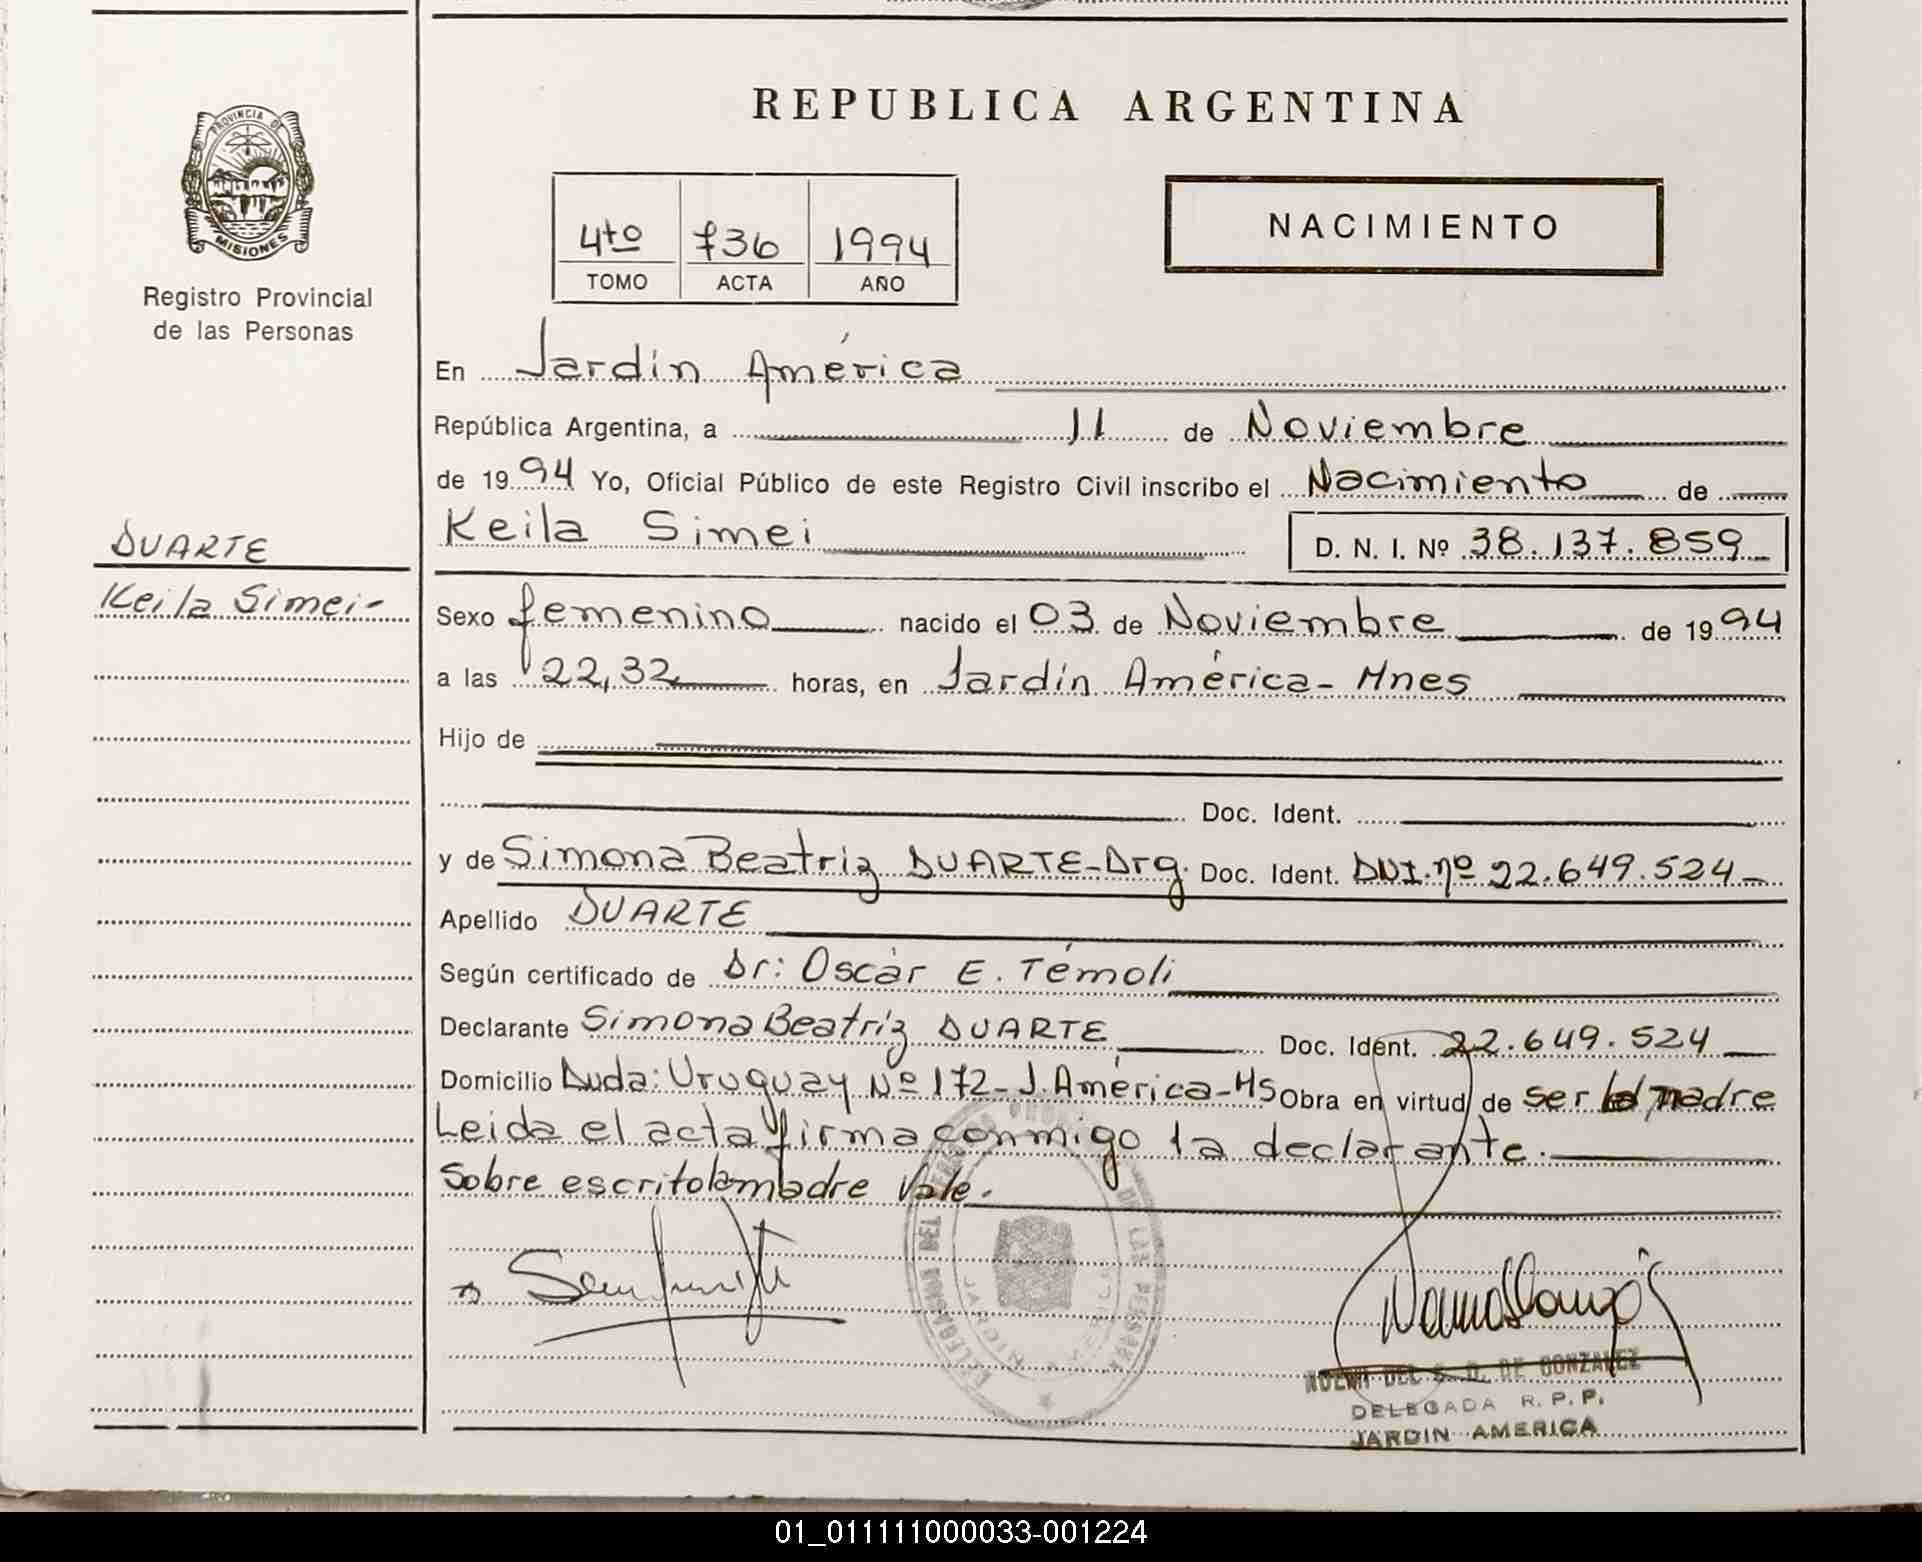 REPUBLICA ARGENTINA
PROVINCIA DE
MISIONES
Registro Provincial
de las Personas
4to 736 1994
TOMO ACTA AÑO
NACIMIENTO
En Jardín América
República Argentina, a 11 de Noviembre
de 1994 Yo, Oficial Público de este Registro Civil inscribo el Nacimiento de
Keila Simei D. N. I. Nº 38.137.859
DUARTE
Keila Simei-
Sexo femenino nacido el 03 de Noviembre de 1994
a las 22,32 horas, en Jardín América- Mnes
Hijo de
Doc. Ident.
y de Simona Beatriz DUARTE-Arg. Doc. Ident. DNI.nº 22.649.524-
Apellido DUARTE
Según certificado de Dr: Oscar E. Témoli
Declarante Simona Beatriz DUARTE Doc. Ident. 22.649.524
Domicilio Avda: Uruguay Nº 172- J. América-Ms Obra en virtud de ser la madre
Leida el acta firma conmigo la declarante.
Sobre escrito la madre Vale.
DELEGACION DEL REGISTRO DE LAS PERSONAS
JARDIN AMERICA
NOEMI DEL S. D. DE GONZALEZ
DELEGADA R. P. P.
JARDIN AMERICA
01_011111000033-001224